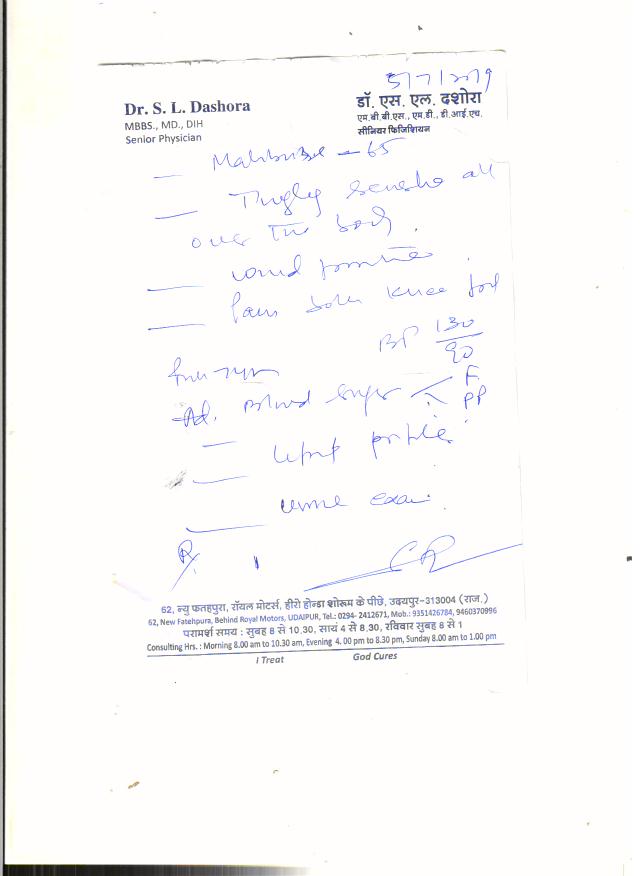 5/7/2019
Dr. S. L. Dashora
MBBS., MD., DIH
Senior Physician
डॉ. एस. एल. दशोरा
एम.बी.बी.एस., एम.डी., डी.आई.एच.
सीनियर फिजिशियन
— 65
— all
over the body.
—
— Pain both knee
BP 130/90
Ad. Blood sugar < F. PP
— profile
— urine exam.
Rx
62, न्यु फतहपुरा, रॉयल मोटर्स, हीरो होन्डा शोरूम के पीछे, उदयपुर-313004 (राज.)
62, New Fatehpura, Behind Royal Motors, UDAIPUR, Tel.: 0294- 2412671, Mob.: 9351426784, 9460370996
परामर्श समय : सुबह 8 से 10.30, सायं 4 से 8.30, रविवार सुबह 8 से 1
Consulting Hrs. : Morning 8.00 am to 10.30 am, Evening 4.00 pm to 8.30 pm, Sunday 8.00 am to 1.00 pm
I Treat God Cures